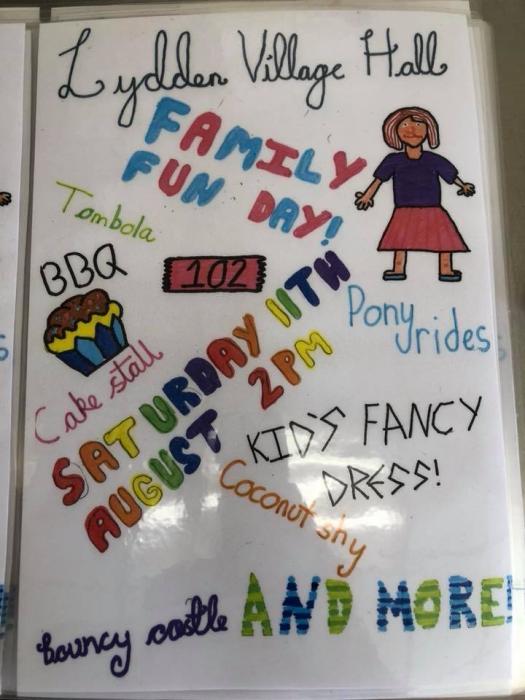 Lydden Village Hall
FAMILY
FUN DAY!
Tombola
BBQ
102
Pony rides
Cake stall
SATURDAY 11TH
AUGUST 2PM
KID'S FANCY
DRESS!
Coconut shy
bouncy castle AND MORE!